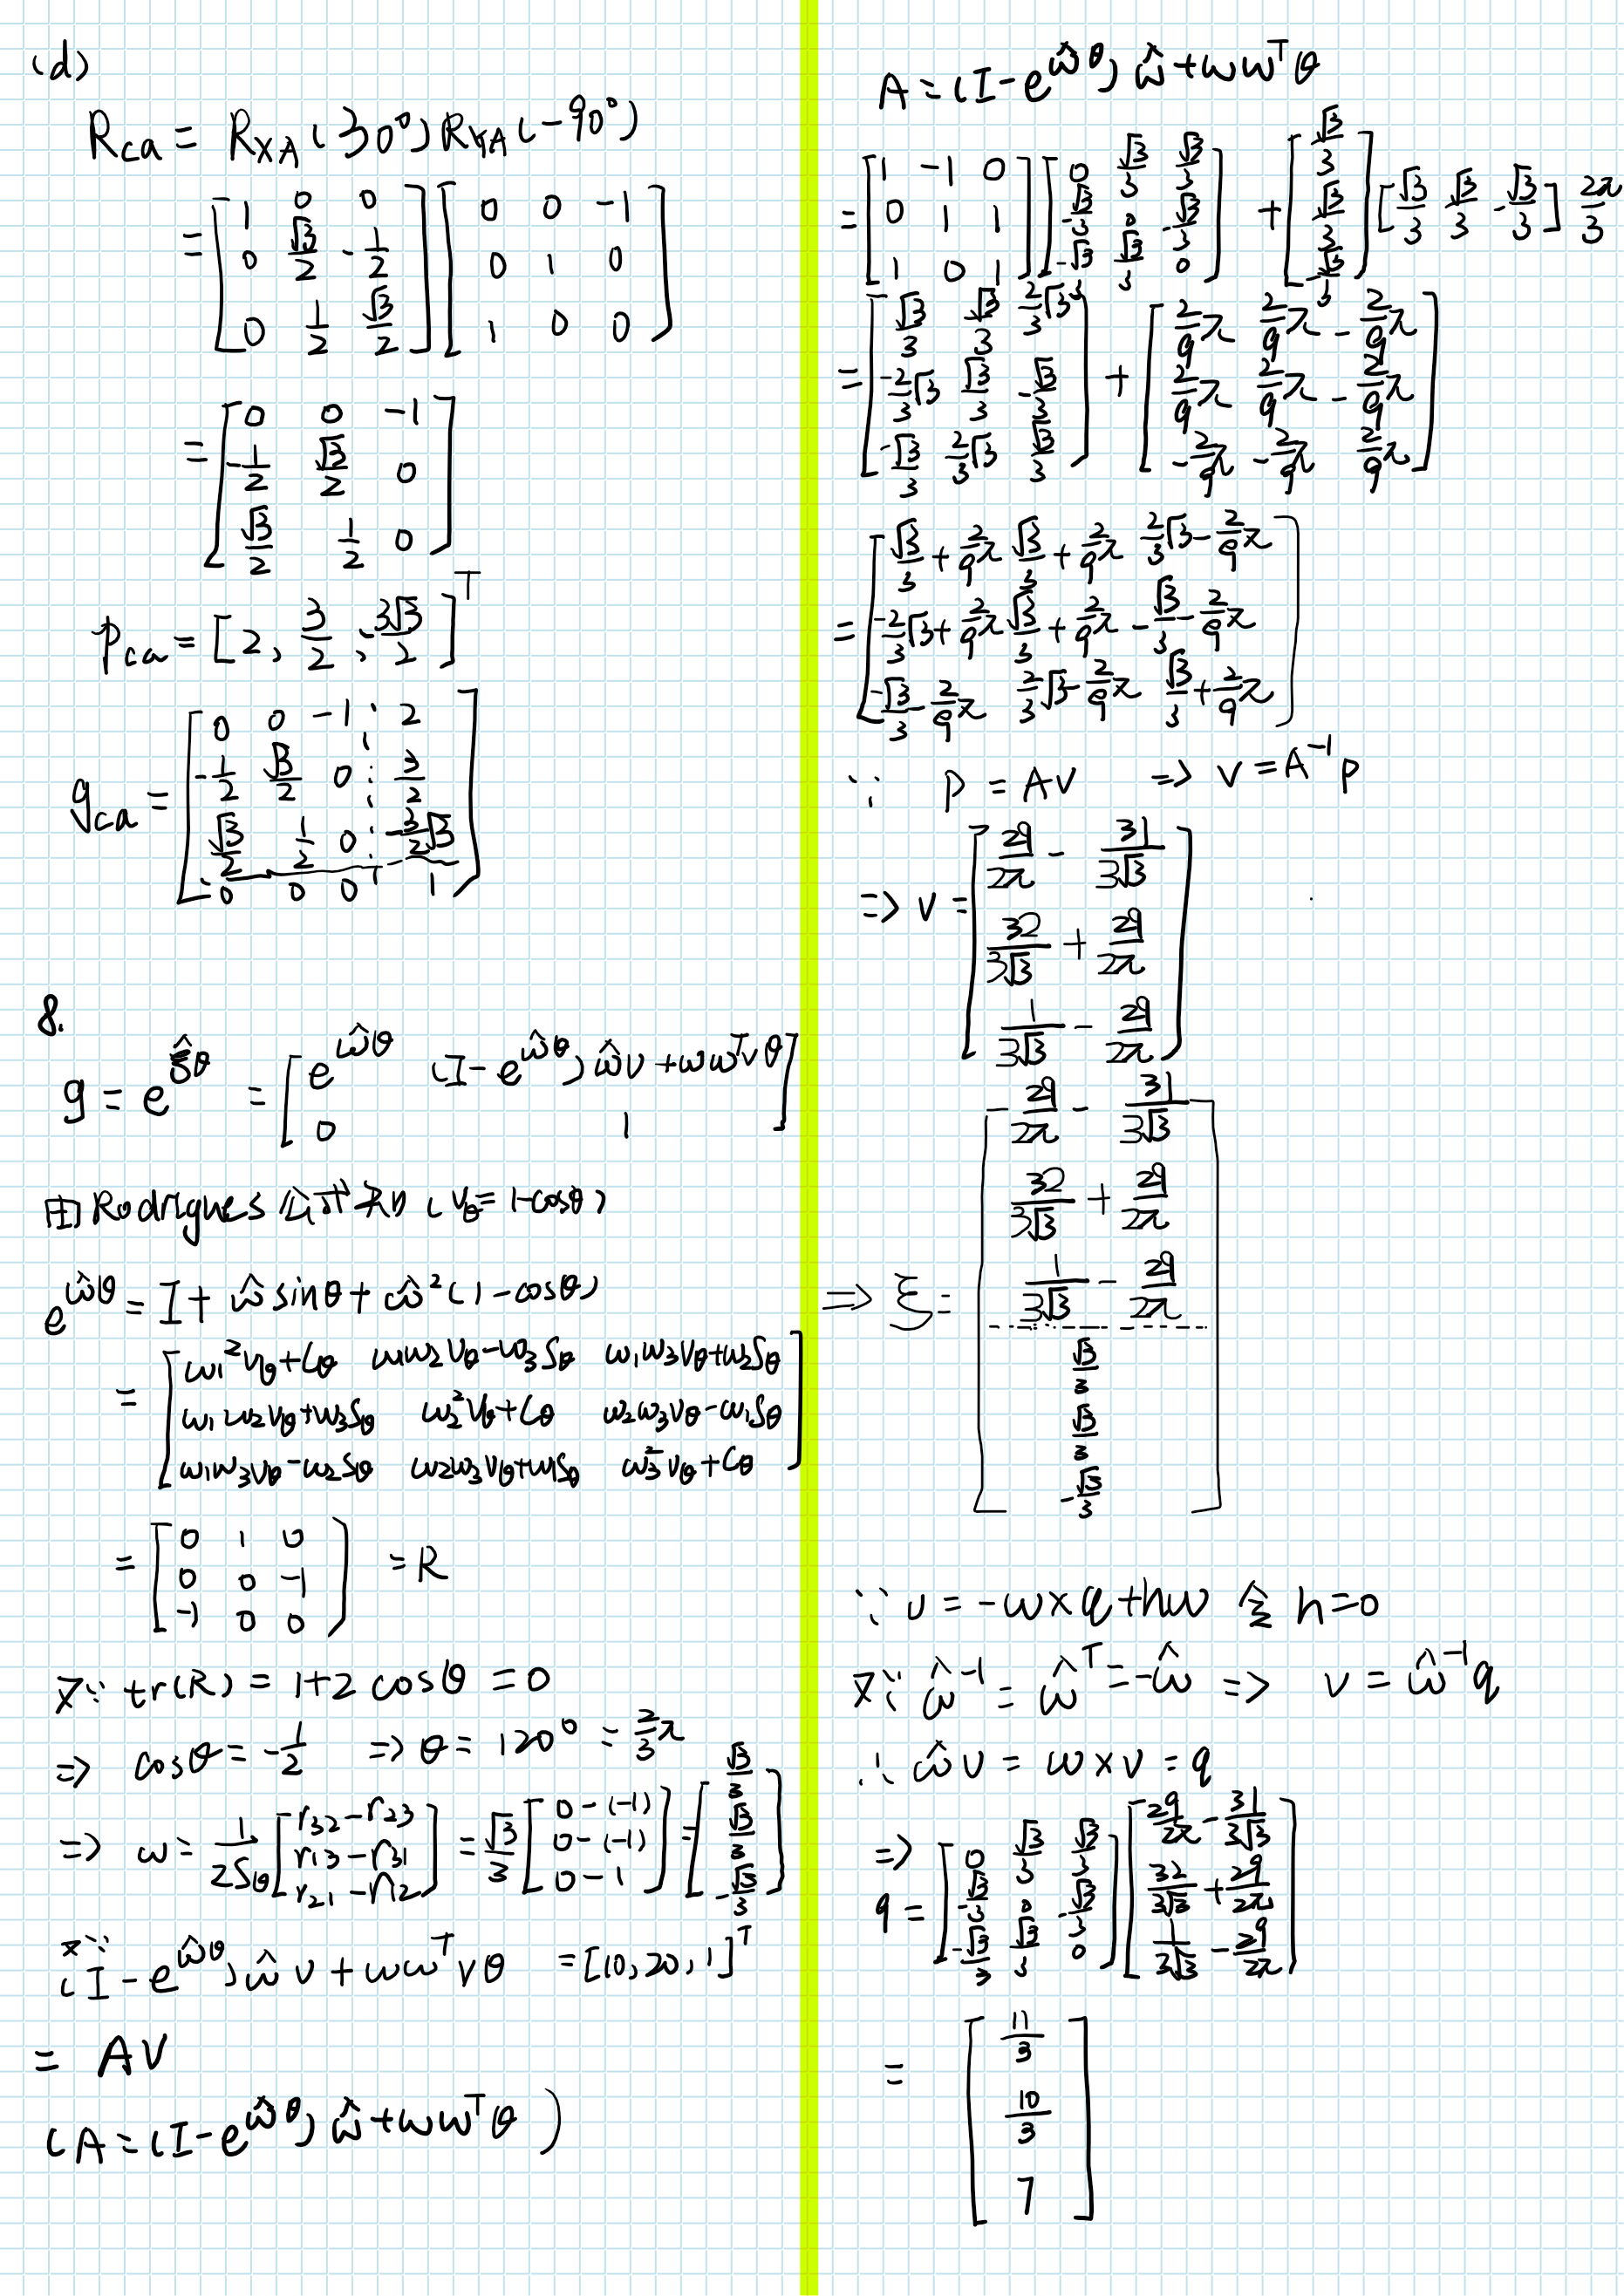 (d)
R_ca = R_XA(30°)R_YA(-90°)
= [1 0 0; 0 √3/2 -1/2; 0 1/2 √3/2] [0 0 -1; 0 1 0; 1 0 0]
= [0 0 -1; -1/2 √3/2 0; √3/2 1/2 0]
P_ca = [2, 3/2, -3√3/2]^T
g_ca = [0 0 -1 2; -1/2 √3/2 0 3/2; √3/2 1/2 0 -3/2√3; 0 0 0 1]
8.
g = e^{ξ̂θ} = [e^{ω̂θ} (I-e^{ω̂θ})ω̂v+ωω^Tvθ; 0 1]
由Rodrigues公式知 (v_θ=1-cosθ)
e^{ω̂θ} = I + ω̂sinθ + ω̂²(1-cosθ)
= [ω₁²v_θ+c_θ ω₁ω₂v_θ-ω₃s_θ ω₁ω₃v_θ+ω₂s_θ; ω₁ω₂v_θ+ω₃s_θ ω₂²v_θ+c_θ ω₂ω₃v_θ-ω₁s_θ; ω₁ω₃v_θ-ω₂s_θ ω₂ω₃v_θ+ω₁s_θ ω₃²v_θ+c_θ]
= [0 1 0; 0 0 -1; -1 0 0] = R
又∵ tr(R) = 1+2cosθ = 0
⇒ cosθ = -1/2 ⇒ θ = 120° = 2/3π
⇒ ω = 1/(2S_θ) [r₃₂-r₂₃; r₁₃-r₃₁; r₂₁-r₁₂] = √3/3 [0-(-1); 0-(-1); 0-1] = [√3/3; √3/3; -√3/3]
又∵
(I-e^{ω̂θ})ω̂v + ωω^Tvθ = [10, 20, 1]^T
= AV
(A = (I-e^{ω̂θ})ω̂+ωω^Tθ)
A = (I-e^{ω̂θ})ω̂+ωω^Tθ
= [1 -1 0; 0 1 1; 1 0 1] [0 √3/3 √3/3; -√3/3 0 -√3/3; -√3/3 √3/3 0] + [√3/3; √3/3; -√3/3] [√3/3 √3/3 -√3/3] 2π/3
= [√3/3 √3/3 2/3√3; -2/3√3 √3/3 -√3/3; -√3/3 2/3√3 √3/3] + [2/9π 2/9π -2/9π; 2/9π 2/9π -2/9π; -2/9π -2/9π 2/9π]
= [√3/3+2/9π √3/3+2/9π 2/3√3-2/9π; -2/3√3+2/9π √3/3+2/9π -√3/3-2/9π; -√3/3-2/9π 2/3√3-2/9π √3/3+2/9π]
∵ P = AV ⇒ v = A^{-1}p
⇒ v = [29/2π - 31/3√3; 32/3√3 + 29/2π; 1/3√3 - 29/2π]
⇒ ξ = [29/2π - 31/3√3; 32/3√3 + 29/2π; 1/3√3 - 29/2π; √3/3; √3/3; -√3/3]
∵ v = -ω×q+hω 令 h=0
又∵ ω̂^{-1} = ω̂^T = -ω̂ ⇒ v = ω̂^{-1}q
∴ ω̂v = ω×v = q
⇒
q = [0 √3/3 √3/3; -√3/3 0 -√3/3; -√3/3 √3/3 0] [29/2π - 31/3√3; 32/3√3 + 29/2π; 1/3√3 - 29/2π]
= [11/3; 10/3; 7]